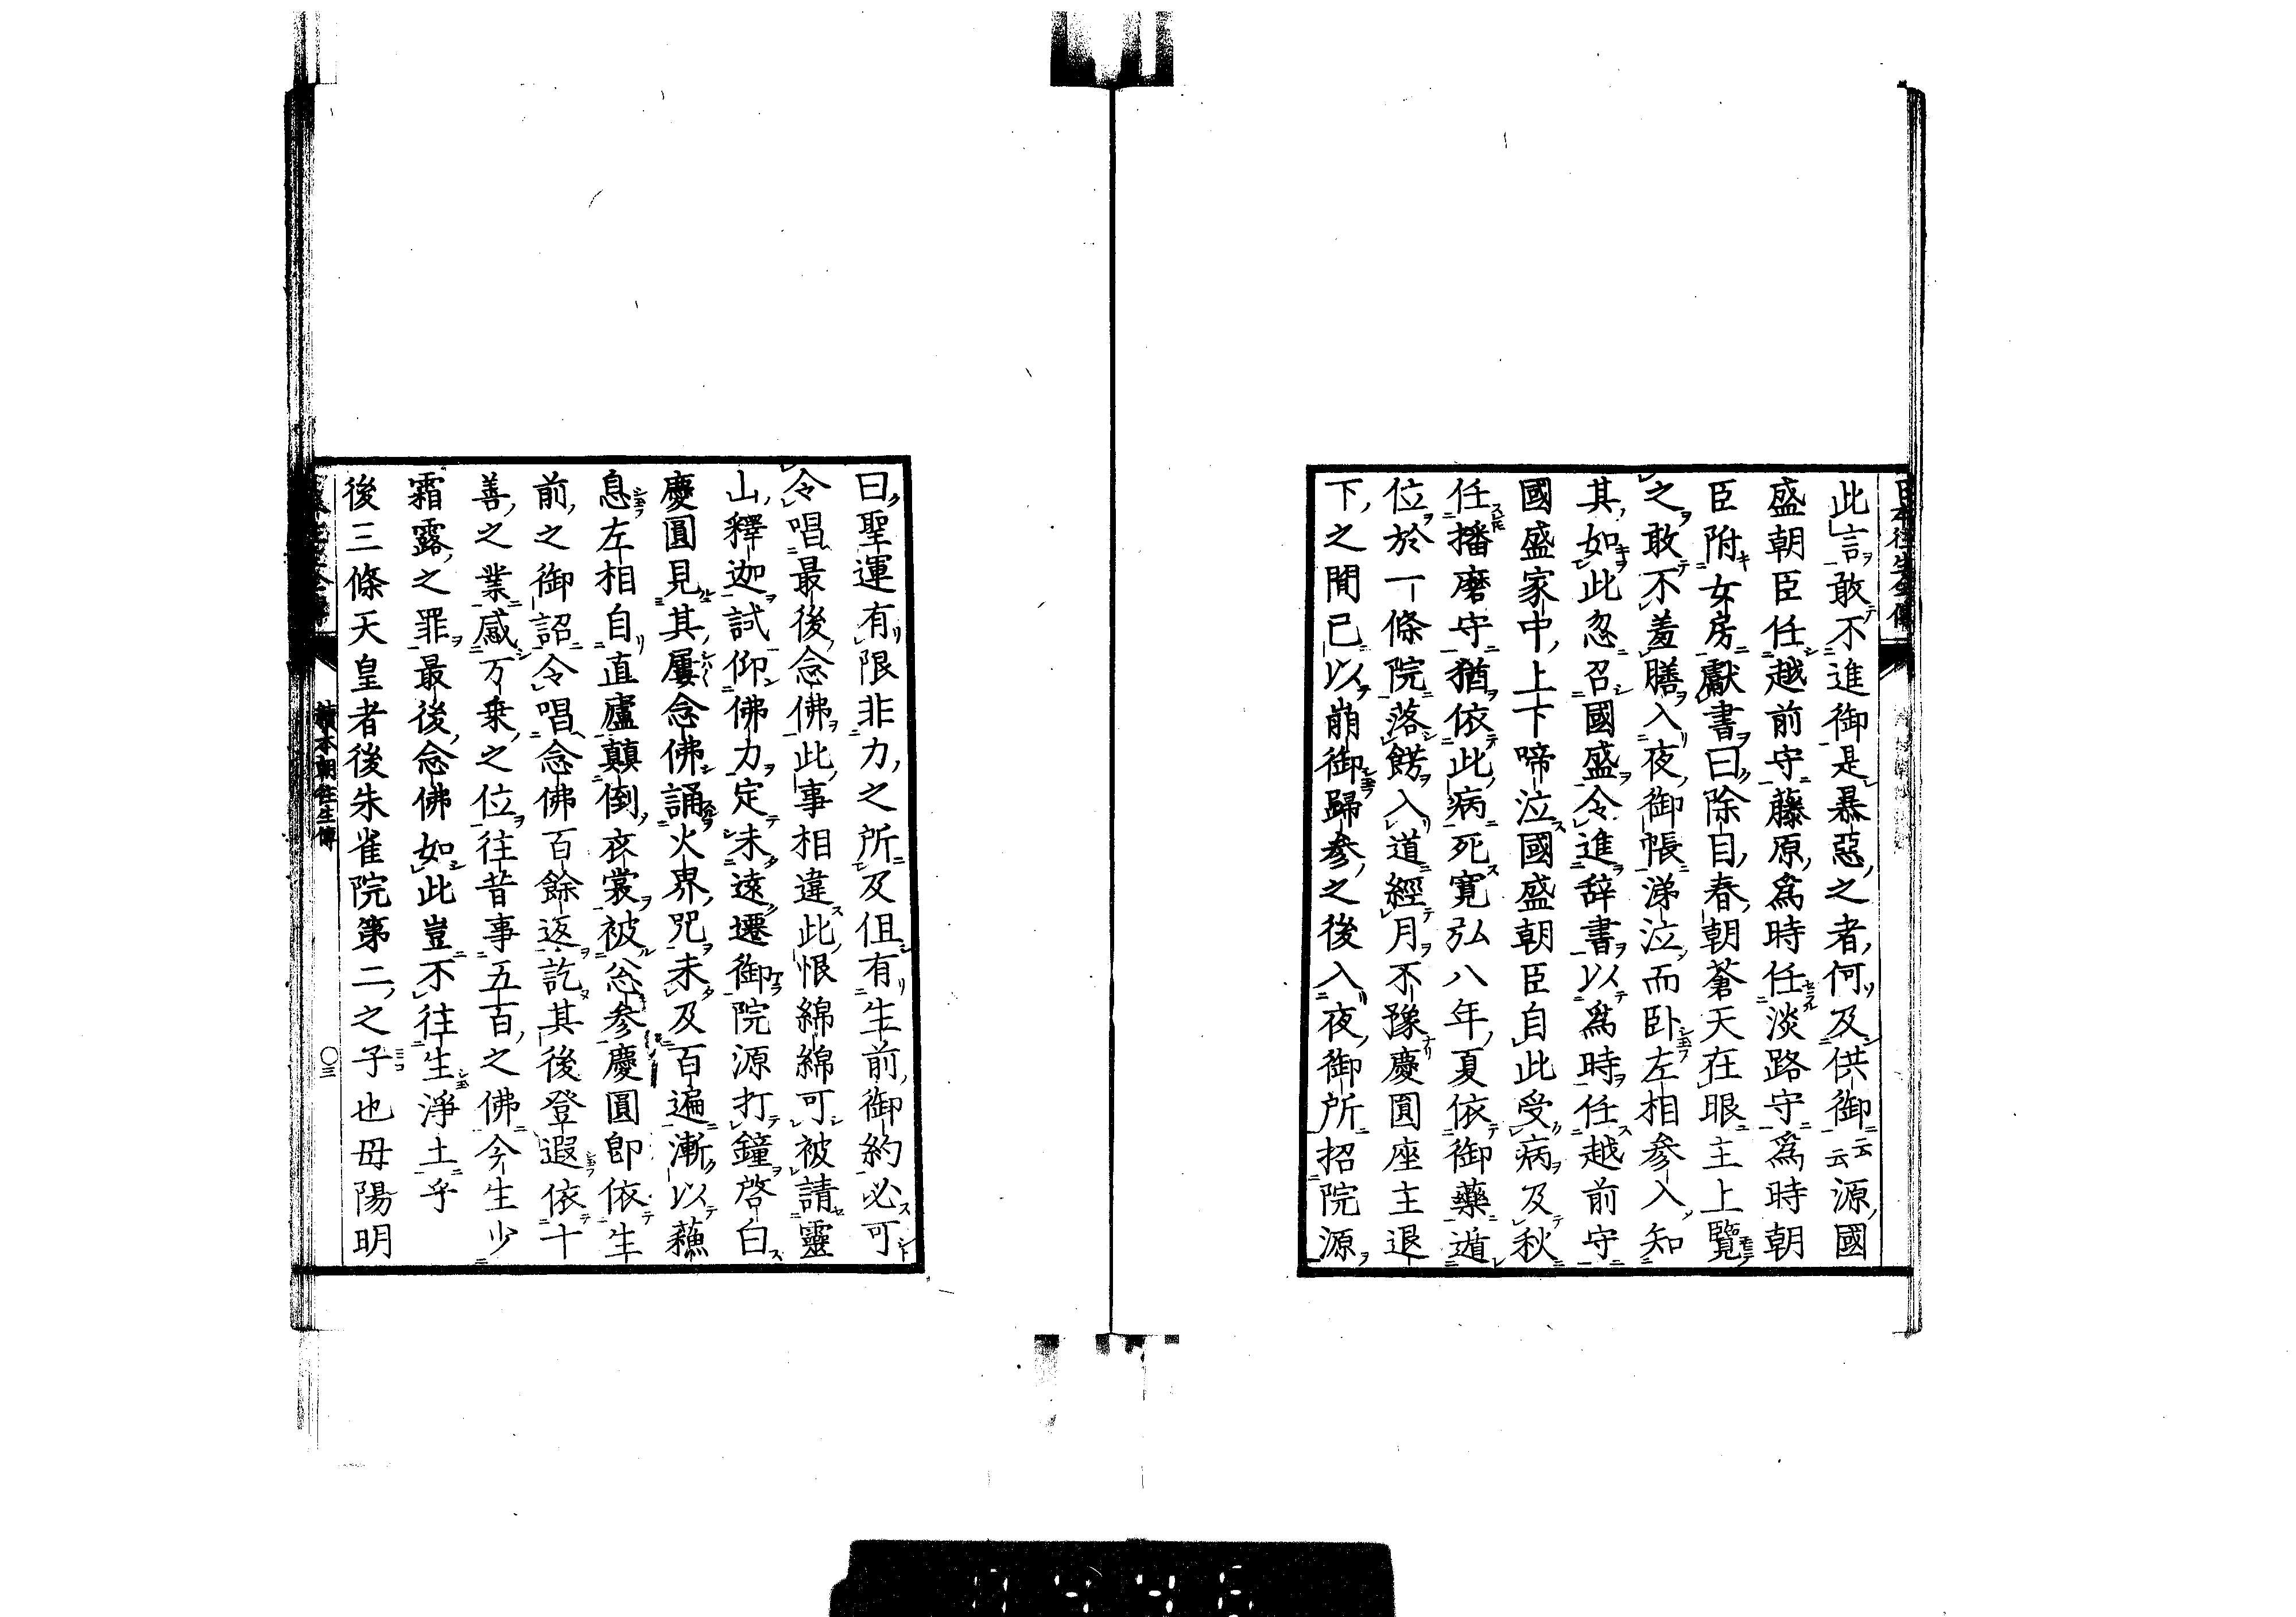 日本往生全傳
此言敢不進御是暴惡之者何及供御云云源國
盛朝臣任越前守藤原爲時任淡路守爲時朝
臣附女房獻書曰除目春朝蒼天在眼主上覽
之敢不羞膳入夜御帳涕泣而卧左相參入知
其如此忽召國盛令進辞書以爲時任越前守
國盛家中上下啼泣國盛朝臣自此受病及秋
任播磨守猶依此病死寛弘八年夏依御藥遁
位於一條院落餝入道經月不豫慶圓座主退
下之間已以崩御歸參之後入夜御所招院源
曰聖運有限非力之所及但有生前御約必可
令唱最後念佛此事相違此恨綿綿可被請靈
山釋迦試仰佛力定未遠遷御院源打鐘啓白
慶圓見其屢念佛誦火界咒未及百遍漸以蘓
息左相自直廬顛倒衣裳被忩參慶圓即依生
前之御詔令唱念佛百餘返訖其後登遐依十
善之業感万乗之位往昔事五百之佛今生少
霜露之罪最後念佛如此豈不往生淨土乎
後三條天皇者後朱雀院第二之子也母陽明
續本朝往生傳
〇三